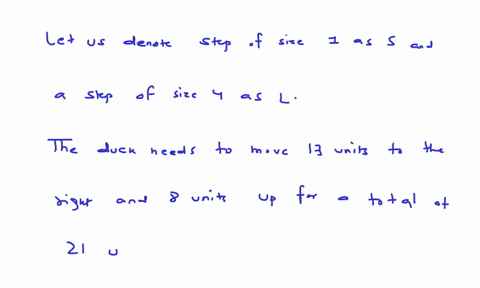 Let us denote step of size 1 as S and
a step of size 4 as L.
The duck needs to move 13 units to the
right and 8 units up for a total of
21 u